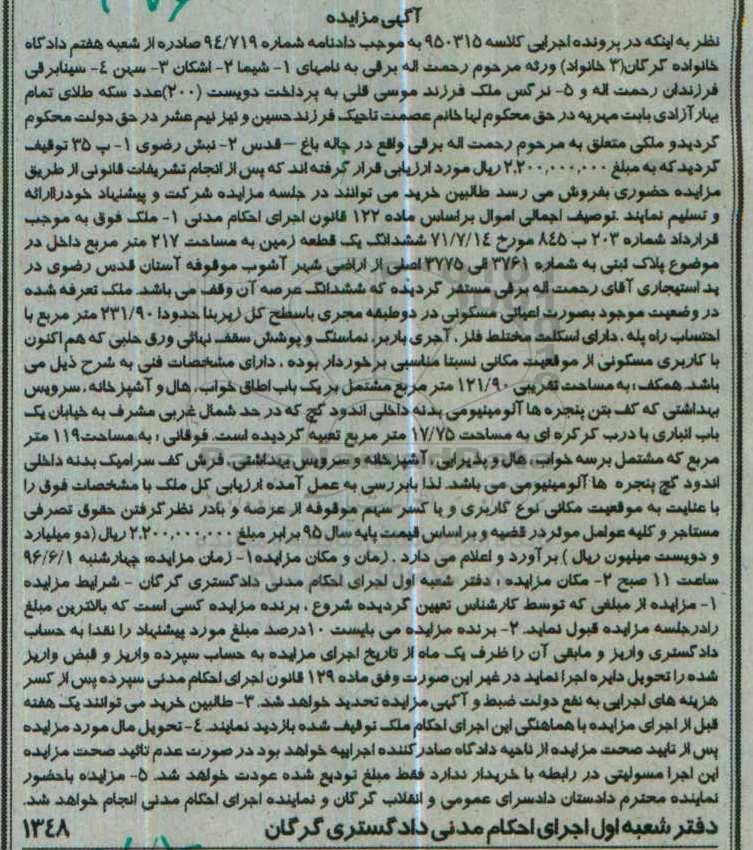 آگهی مزایده
نظر به اینکه در پرونده اجرایی کلاسه ۹۵۰۳۱۵ به موجب دادنامه شماره ۹۴/۷۱۹ صادره از شعبه هفتم دادگاه
خانواده گرگان(۳ خانواد) ورثه مرحوم رحمت اله برقی به نامهای ۱- شیما ۲- اشکان ۳- سهن ۴- سینابرقی
فرزندان رحمت اله و ۵- نرگس ملک فرزند موسی قلی به پرداخت دویست (۲۰۰)عدد سکه طلای تمام
بهارآزادی بابت مهریه در حق محکوم لها خانم عصمت تاجیک فرزند حسین و نیز نیم عشر در حق دولت محکوم
گردیدو ملکی متعلق به مرحوم رحمت اله برقی واقع در چاله باغ – قدس ۲- نبش رضوی ۱- پ ۳۵ توقیف
گردید که به مبلغ ۲.۲۰۰.۰۰۰.۰۰۰ ریال مورد ارزیابی قرار گرفته اند که پس از انجام تشریفات قانونی از طریق
مزایده حضوری بفروش می رسد طالبین خرید می توانند در جلسه مزایده شرکت و پیشنهاد خودراارائه
و تسلیم نمایند .توصیف اجمالی اموال براساس ماده ۱۲۲ قانون اجرای احکام مدنی ۱- ملک فوق به موجب
قرارداد شماره ۲۰۳ ب ۸۴۵ مورخ ۷۱/۷/۱۴ ششدانگ یک قطعه زمین به مساحت ۲۱۷ متر مربع داخل در
موضوع پلاک ثبتی به شماره ۳۷۶۱ الی ۳۷۷۵ اصلی از اراضی شهر آشوب موقوفه آستان قدس رضوی در
ید استیجاری آقای رحمت اله برقی مستقر گردیده که ششدانگ عرصه آن وقف می باشد. ملک تعرفه شده
در وضعیت موجود بصورت اعیانی مسکونی در دوطبقه مجزی باسطح کل زیربنا حدودا ۲۳۱/۹۰ متر مربع با
احتساب راه پله ، دارای اسکلت مختلط فلز ، آجری باربر، نماسنگ و پوشش سقف نهائی ورق حلبی که هم اکنون
با کاربری مسکونی از موقعیت مکانی نسبتا مناسبی برخوردار بوده ، دارای مشخصات فنی به شرح ذیل می
باشد. همکف : به مساحت تقریبی ۱۲۱/۹۰ متر مربع مشتمل بر یک باب اطاق خواب ، هال و آشپزخانه ، سرویس
بهداشتی که کف بتن پنجره ها آلومینیومی بدنه داخلی اندود گچ که در حد شمال غربی مشرف به خیابان یک
باب انباری با درب کرکره ای به مساحت ۱۷/۷۵ متر مربع تعبیه گردیده است. فوقانی : به مساحت ۱۱۹ متر
مربع که مشتمل برسه خواب ، هال و پذیرایی، آشپزخانه و سرویس بهداشتی، فرش کف سرامیک بدنه داخلی
اندود گچ پنجره ها آلومینیومی می باشد. لذا بابررسی به عمل آمده ارزیابی کل ملک با مشخصات فوق را
با عنایت به موقعیت مکانی نوع کاربری و با کسر سهم موقوفه از عرصه و بادر نظر گرفتن حقوق تصرفی
مستاجر و کلیه عوامل موثردر قضیه و براساس قیمت پایه سال ۹۵ برابر مبلغ ۲.۲۰۰.۰۰۰.۰۰۰ ریال (دو میلیارد
و دویست میلیون ریال ) برآورد و اعلام می دارد . زمان و مکان مزایده۱- زمان مزایده: چهارشنبه ۹۶/۶/۱
ساعت ۱۱ صبح ۲- مکان مزایده : دفتر شعبه اول اجرای احکام مدنی دادگستری گرگان - شرایط مزایده
۱- مزایده از مبلغی که توسط کارشناس تعیین گردیده شروع ، برنده مزایده کسی است که بالاترین مبلغ
رادرجلسه مزایده قبول نماید. ۲- برنده مزایده می بایست ۱۰درصد مبلغ مورد پیشنهاد را نقدا به حساب
دادگستری واریز و مابقی آن را ظرف یک ماه از تاریخ اجرای مزایده به حساب سپرده واریز و قبض واریز
شده را تحویل دایره اجرا نماید در غیر این صورت وفق ماده ۱۲۹ قانون اجرای احکام مدنی سپرده پس از کسر
هزینه های اجرایی به نفع دولت ضبط و آگهی مزایده تجدید خواهد شد. ۳- طالبین خرید می توانند یک هفته
قبل از اجرای مزایده با هماهنگی این اجرای احکام ملک توقیف شده بازدید نمایند. ۴- تحویل مال مورد مزایده
پس از تایید صحت مزایده از ناحیه دادگاه صادر کننده اجراییه خواهد بود در صورت عدم تائید صحت مزایده
این اجرا مسولیتی در رابطه با خریدار ندارد فقط مبلغ تودیع شده عودت خواهد شد. ۵- مزایده باحضور
نماینده محترم دادستان دادسرای عمومی و انقلاب گرگان و نماینده اجرای احکام مدنی انجام خواهد شد.
دفتر شعبه اول اجرای احکام مدنی دادگستری گرگان ۱۳۴۸